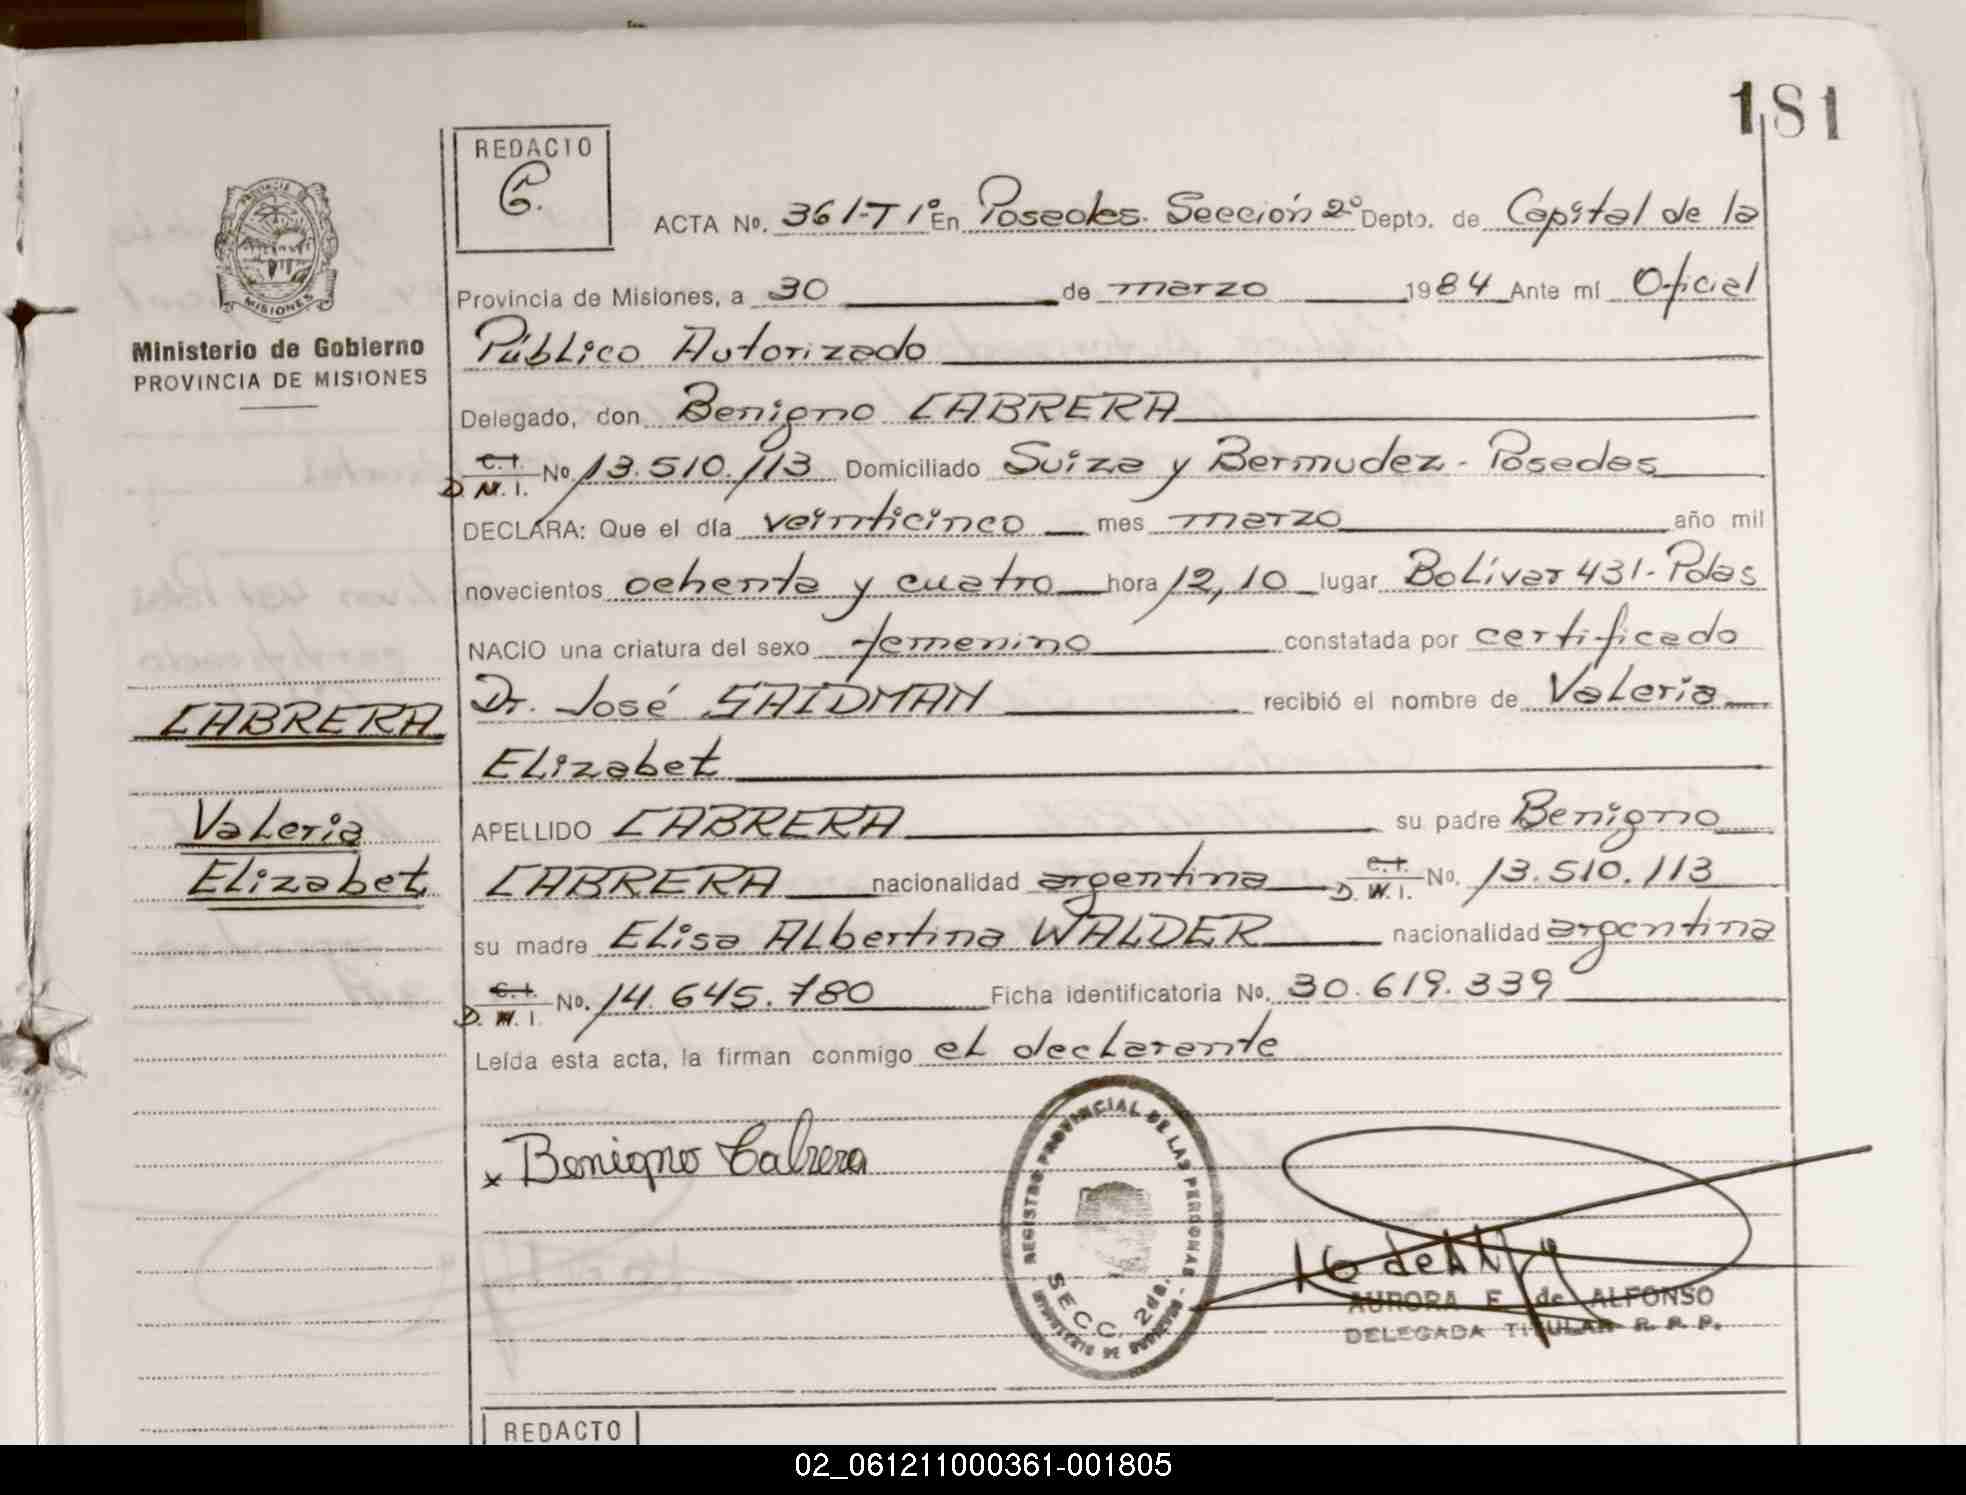 181
REDACTO
C.
ACTA No. 361-T1º En Posadas. Sección 2º Depto. de Capital de la
Provincia de Misiones, a 30 de marzo 1984 Ante mí Oficial
Público Autorizado
Delegado, don Benigno CABRERA
C.I. D.N.I. No. 13.510.113 Domiciliado Suiza y Bermudez - Posadas
DECLARA: Que el día veinticinco mes marzo año mil
novecientos ochenta y cuatro hora 12,10 lugar Bolívar 431-Pdas
NACIO una criatura del sexo femenino constatada por certificado
Dr. José SAIDMAN recibió el nombre de Valeria
Elizabet
APELLIDO CABRERA su padre Benigno
CABRERA nacionalidad argentina C.I. D.N.I. No. 13.510.113
su madre Elisa Albertina WALDER nacionalidad argentina
C.I. D.N.I. No. 14.645.780 Ficha identificatoria No. 30.619.339
Leída esta acta, la firman conmigo el declarante
MISIONES
Ministerio de Gobierno
PROVINCIA DE MISIONES
CABRERA
Valeria
Elizabet
x Benigno Cabrera
REGISTRO PROVINCIAL DE LAS PERSONAS
SECC. 2da.
AURORA E. de ALFONSO
DELEGADA TITULAR R. P. P.
REDACTO
02_061211000361-001805